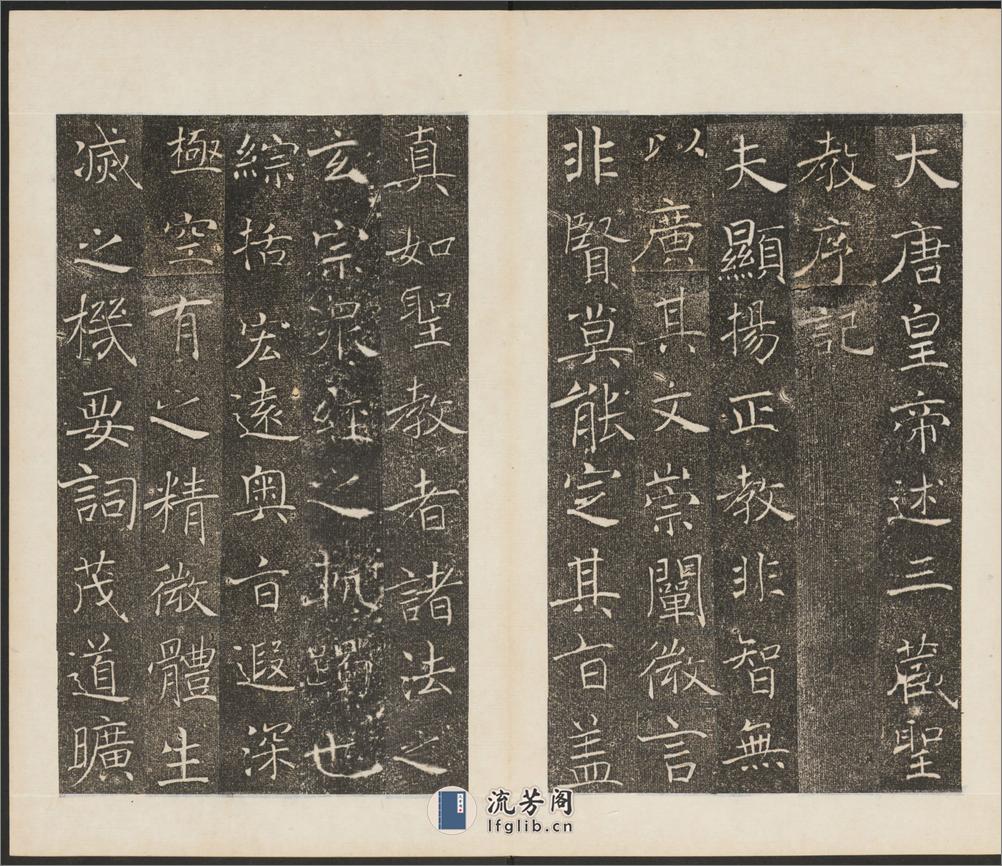 大唐皇帝述三藏聖
教序記
夫顯揚正教非智無
以廣其文崇闡微言
非賢莫能定其旨盖
真如聖教者諸法之
玄宗眾經之軌躅也
綜括宏遠奧旨遐深
極空有之精微體生
滅之機要詞茂道曠
流芳阁
lfglib.cn